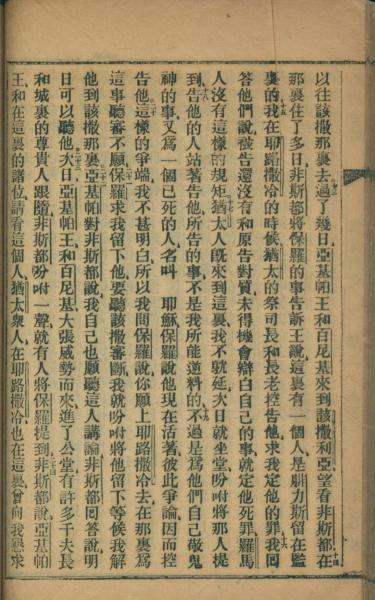 以往該撒那裏去過了幾日亞基帕王和百尼基來到該撒利亞望看非斯都在
十四
那裏住了多日非斯都將保羅的事告訴王說這裏有一個人是腓力斯留在監
十五
裏的我在耶路撒冷的時候猶太的祭司長和長老控告他求我定他的罪我囘
十六
答他們說被告還沒有和原告對質未得機會辯白自己的事就定他死罪羅馬
人沒有這樣的規矩猶太人旣來到這裏我不躭延次日就坐堂吩咐將那人提
十七
到告他的人站着告他所告的事不是我所能逆料的不過是爲他們自己敬鬼
十八
神的事又爲一個已死的人名叫耶穌保羅說他現在活著彼此爭論因而控
告他這樣的爭端我不甚明白所以我問保羅說你願上耶路撒冷去在那裏爲
二十
這事聽審不願保羅求我留下他要聽該撒審斷我就吩咐將他留下等候我解
他到該撒那裏亞基帕對非斯都說我自己也願聽這人講論非斯都囘答說明
二十二
日可以聽他次日亞基帕王和百尼基大張威勢而來進了公堂有許多千夫長
二十三
和城裏的尊貴人跟隨非斯都吩咐一聲就有人將保羅提到非斯都說亞基帕
王和在這裏的諸位請看這個人猶太衆人在耶路撒冷也在這裏曾向我懇求